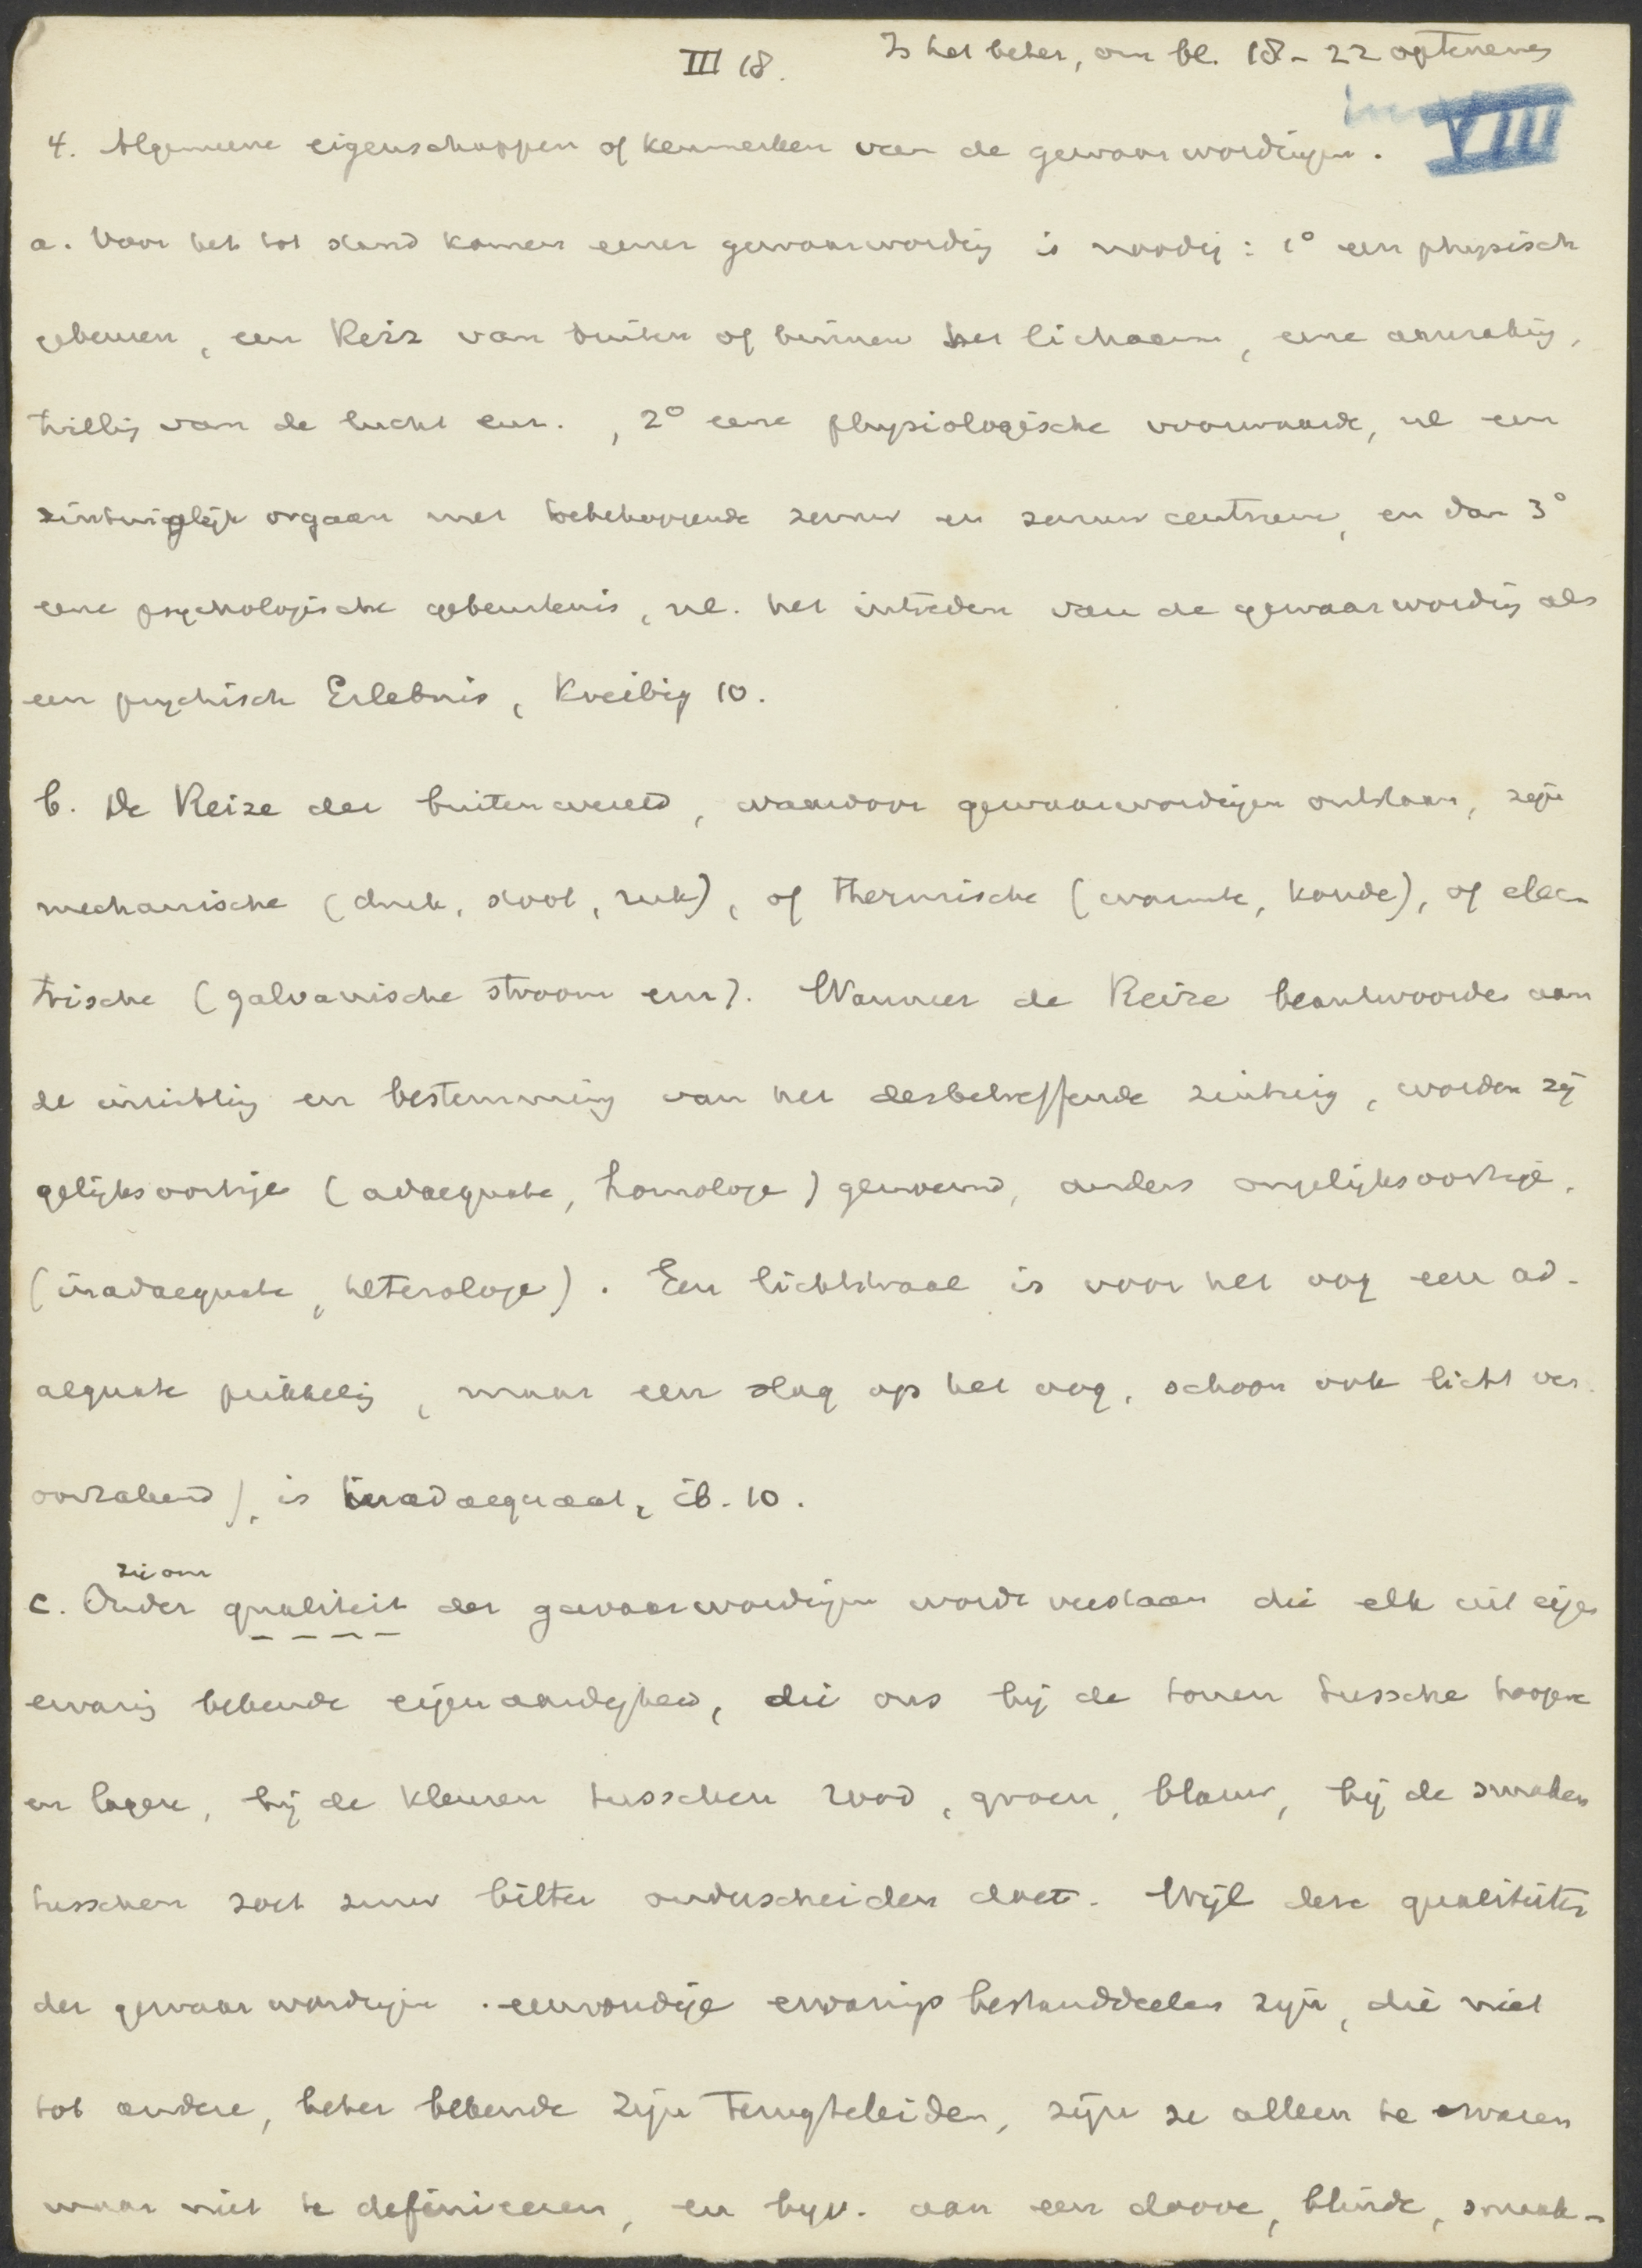 III 18. Is het beter, om bl. 18-22 optenemen
in VIII
4. Algemeene eigenschappen of kenmerken van de gewaarwordingen.
a. Voor het tot stand komen eener gewaarwording is noodig: 1° een physisch
gebeuren, een Reiz van buiten of binnen het lichaam, eene aanraking,
trilling van de lucht enz., 2° eene physiologische voorwaarde, nl een
zintuigelijk orgaan met toebehoorende zenuw en zenuwcentrum, en dan 3°
eene psychologische gebeurtenis, nl. het intreden van de gewaarwording als
een psychisch Erlebnis, Kreibig 10.
b. De Reize der buitenwereld, waardoor gewaarwordingen ontstaan, zijn
mechanische (druk, stoot, ruk), of thermische (warmte, koude), of elec-
trische (galvanische stroom enz). Wanneer de Reize beantwoorden aan
de inrichting en bestemming van het desbetreffende zintuig, worden zij
gelijksoortige (adaequate, homologe) genoemd, anders ongelijksoortige.
(inadaequate, heterologe). Een lichtstraal is voor het oog een ad-
aequate prikkeling, maar een slag op het oog, schoon ook licht ver-
oorzakend, is inadaequaat, ib. 10.
zie om
c. Onder qualiteit der gewaarwordingen wordt verstaan die elk uit eigen
ervaring bekende eigenaardigheid, die ons bij de tonen tussche hoogere
en lagere, bij de kleuren tusschen rood, groen, blauw, bij de smaken
tusschen zoet zuur bitter onderscheiden doet. Wijl deze qualiteiten
der gewaarwordingen eenvoudige ervaringsbestanddeelen zijn, die niet
tot andere, beter bekende zijn terugteleiden, zijn ze alleen te ervaren
maar niet te definieeren, en bijv. aan een doove, blinde, smaak-